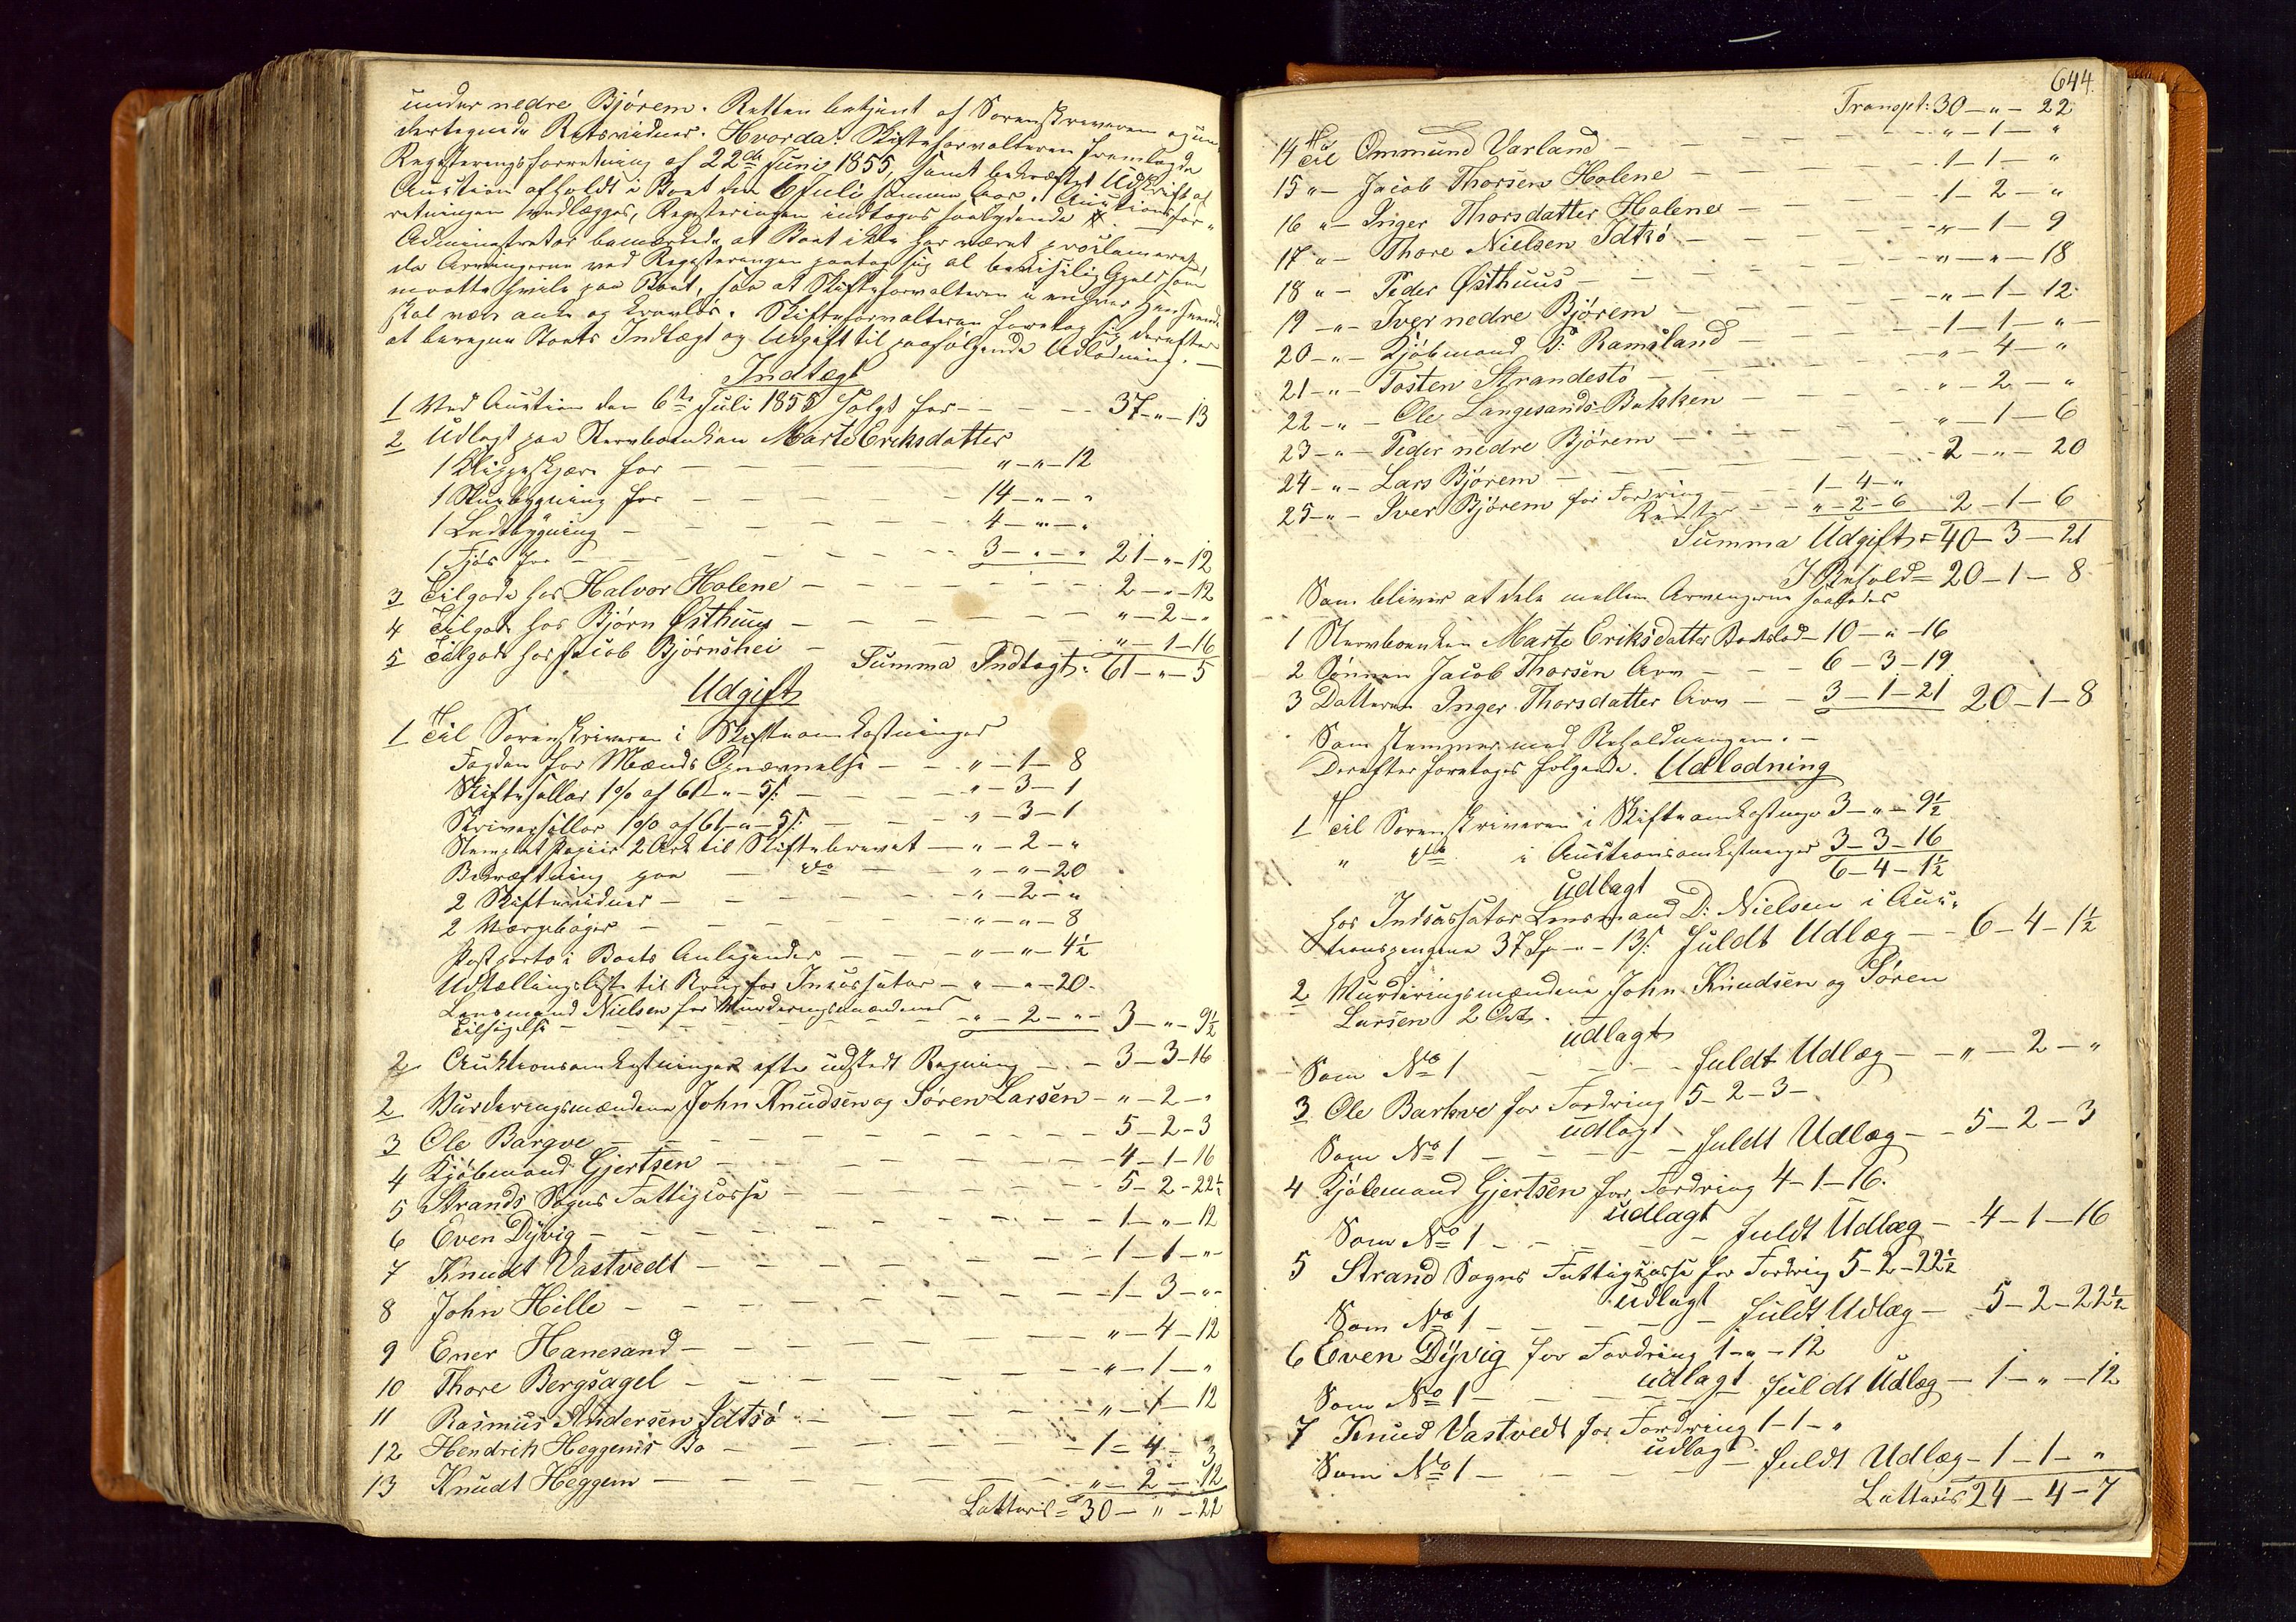 under nedre Bjørem. Retten betjent af Sorenskriveren og un-
dertegnede Retsvidner. Hvorda: Skifteforvalteren fremlagde
Registeringsforretning af 22de Juni 1855, samt bekræftet Udskrift af
Auction afholdt i Boet den 6 Juli samme Aar. Auctionsfor-
retningen vedlægges, Registeringen indtages saalydende
Administrator bemærkede at Boet ikke har været proclameret
da Arvingerne ved Registeringen paatog sig al beviislig Gjæld som
maatte hvile paa Boet, saa at Skifteforvalteren i enhver Henseende
skal være anke og kravløs. Skifteforvalteren foretog sig derefter
at beregne Boets Indtægt og Udgift til paafølgende Udlodning.
Indtægt
1 Ved Auction den 6te Juli 1855 solgt for - - - 37 - " - 13
2 Udlagt paa Stervboenken Marte Eriksdatter
1 Klippeskjære for - - " - " - 12
1 Stuebygning for - - 14 - " - "
1 Ladebygning - - 4 - " - "
1 Fjøs for - - 3 - " - " 21 - " - 12
3 Tilgode hos Halvor Holene - - 2 - " - 12
4 Tilgode hos Bjørn Østhuus - - " - 2 - "
5 Tilgode hos Jacob Bjørnshei - " - 1 - 16
Summa Indtægt: 61 - " - 5
Udgift
1 Til Sorenskriveren i Skifteomkostninger
Fogden for Mænds Opnævnelse - - " - 1 - 8
Skiftesallar 1% af 61 - " - 5 s: - - " - 3 - 1
Skriversallar 1% af 61 - " - 5 s: - - " - 3 - 1
Stemplet Papiir 2 Ark til Skiftebrevet - " - 2 - "
Bekræftning paa - do - " - " - 20
2 Skiftevidner - - " - 2 - "
2 Værgebøger - - " - " - 8
Postporto i Boets Anliggender - - " - " - 4½
Udtællingsliste til Brug for Incassator - " - " - 20.
Lensmand Nielsen for Vurderingsmændenes
Tilsigelse - - " - 2 - " - 3 - " - 9½
2 Auktionsomkostninger efter udstedt Regning - - 3 - 3 - 16
2 Vurderingsmændene John Knudsen og Søren Larsen - " - 2 - "
3 Ole Bargve - - 5 - 2 - 3
4 Kjøbmand Gjertsen - - 4 - 1 - 16
5 Strands Sogns Fattigcasse - - 5 - 2 - 22½
6 Even Dyvig - - 1 - " - 12
7 Knudt Vastvedt - - 1 - 1 - "
8 John Hille - - 1 - 3 - "
9 Ener Hanesand - - " - 4 - 12
10 Thore Bergsagel - - " - 1 - "
11 Rasmus Andersen Idtsø - - " - 1 - 12
12 Hendrik Heggems Bo - - 1 - 4 - 3
13 Knudt Heggem - - " - 2 - 12
Latteris = 30 - " - 22
644.
Transpt: 30 - " - 22
14 Til Ommund Varland - - " - 1 - "
15 " - Jacob Thorsen Holene - - 1 - 1 - "
16 " - Inger Thorsdatter Holene - - 1 - 2 - "
17 " - Thore Nielsen Idtsø - - " - 1 - 9
18 " - Peder Østhuus - - " - " - 18
19 - " - Iver nedre Bjørem - - " - 1 - 12
20 - " - Kjøbmand T: Ramsland - - 1 - 1 - "
21 - " - Tosten Strandestø - - " - 4 - "
22 - " - Ole Langesands-Bakken - - " - 2 - "
23 - " - Peder nedre Bjørem - - " - 1 - 6
24 - " - Lars Bjørem - - 2 - " - 20
25 - " - Iver Bjørem for Fordring - - 1 - 4 - "
" - 2 - 6 2 - 1 - 6
Summa Udgift = 40 - 3 - 21
I Behold = 20 - 1 - 8
Som bliver at dele mellem Arvingerne saaledes
1 Stervboenken Marte Eriksdatter Boeslod - 10 - " - 16
2 Sønnen Jacob Thorsen Arv - - 6 - 3 - 19
3 Datteren Inger Thorsdatter Arv - - 3 - 1 - 21 20 - 1 - 8
Som stemmer med Beholdningen. -
Derefter foretoges følgende. Udlodning
1 Til Sorenskriveren i Skifteomkostninger 3 - " - 9½
" do i Auctionsomkostninger 3 - 3 - 16
6 - 4 - 1½
udlagt
hos Incassator Lensmand D: Nielsen i Auc-
tionspengene 37 Sp - " - 13 s: fuldt Udlæg - - 6 - 4 - 1½
2 Vurderingsmændene John Knudsen og Søren
Larsen 2 Ort.
udlagt
Som No 1 - - fuldt Udlæg - - " - 2 - "
3 Ole Barkve for Fordring 5 - 2 - 3 -
udlagt
Som No 1 - - fuldt Udlæg - - 5 - 2 - 3
4 Kjøbmand Gjertsen for Fordring 4 - 1 - 16.
udlagt
Som No 1 - - fuldt Udlæg - - 4 - 1 - 16
5 Strand Sogns Fattigcasse for Fordring 5 - 2 - 22½
udlagt
Som No 1 - - fuldt Udlæg - 5 - 2 - 22½
6 Even Dyvig for Fordring 1 - " - 12
udlagt
Som No 1 - - fuldt Udlæg - 1 - " - 12
7 Knud Vastvedt for Fordring 1 - 1 - "
udlagt
Som No 1 - - fuldt Udlæg - 1 - 1 - "
Latteris 24 - 4 - 7